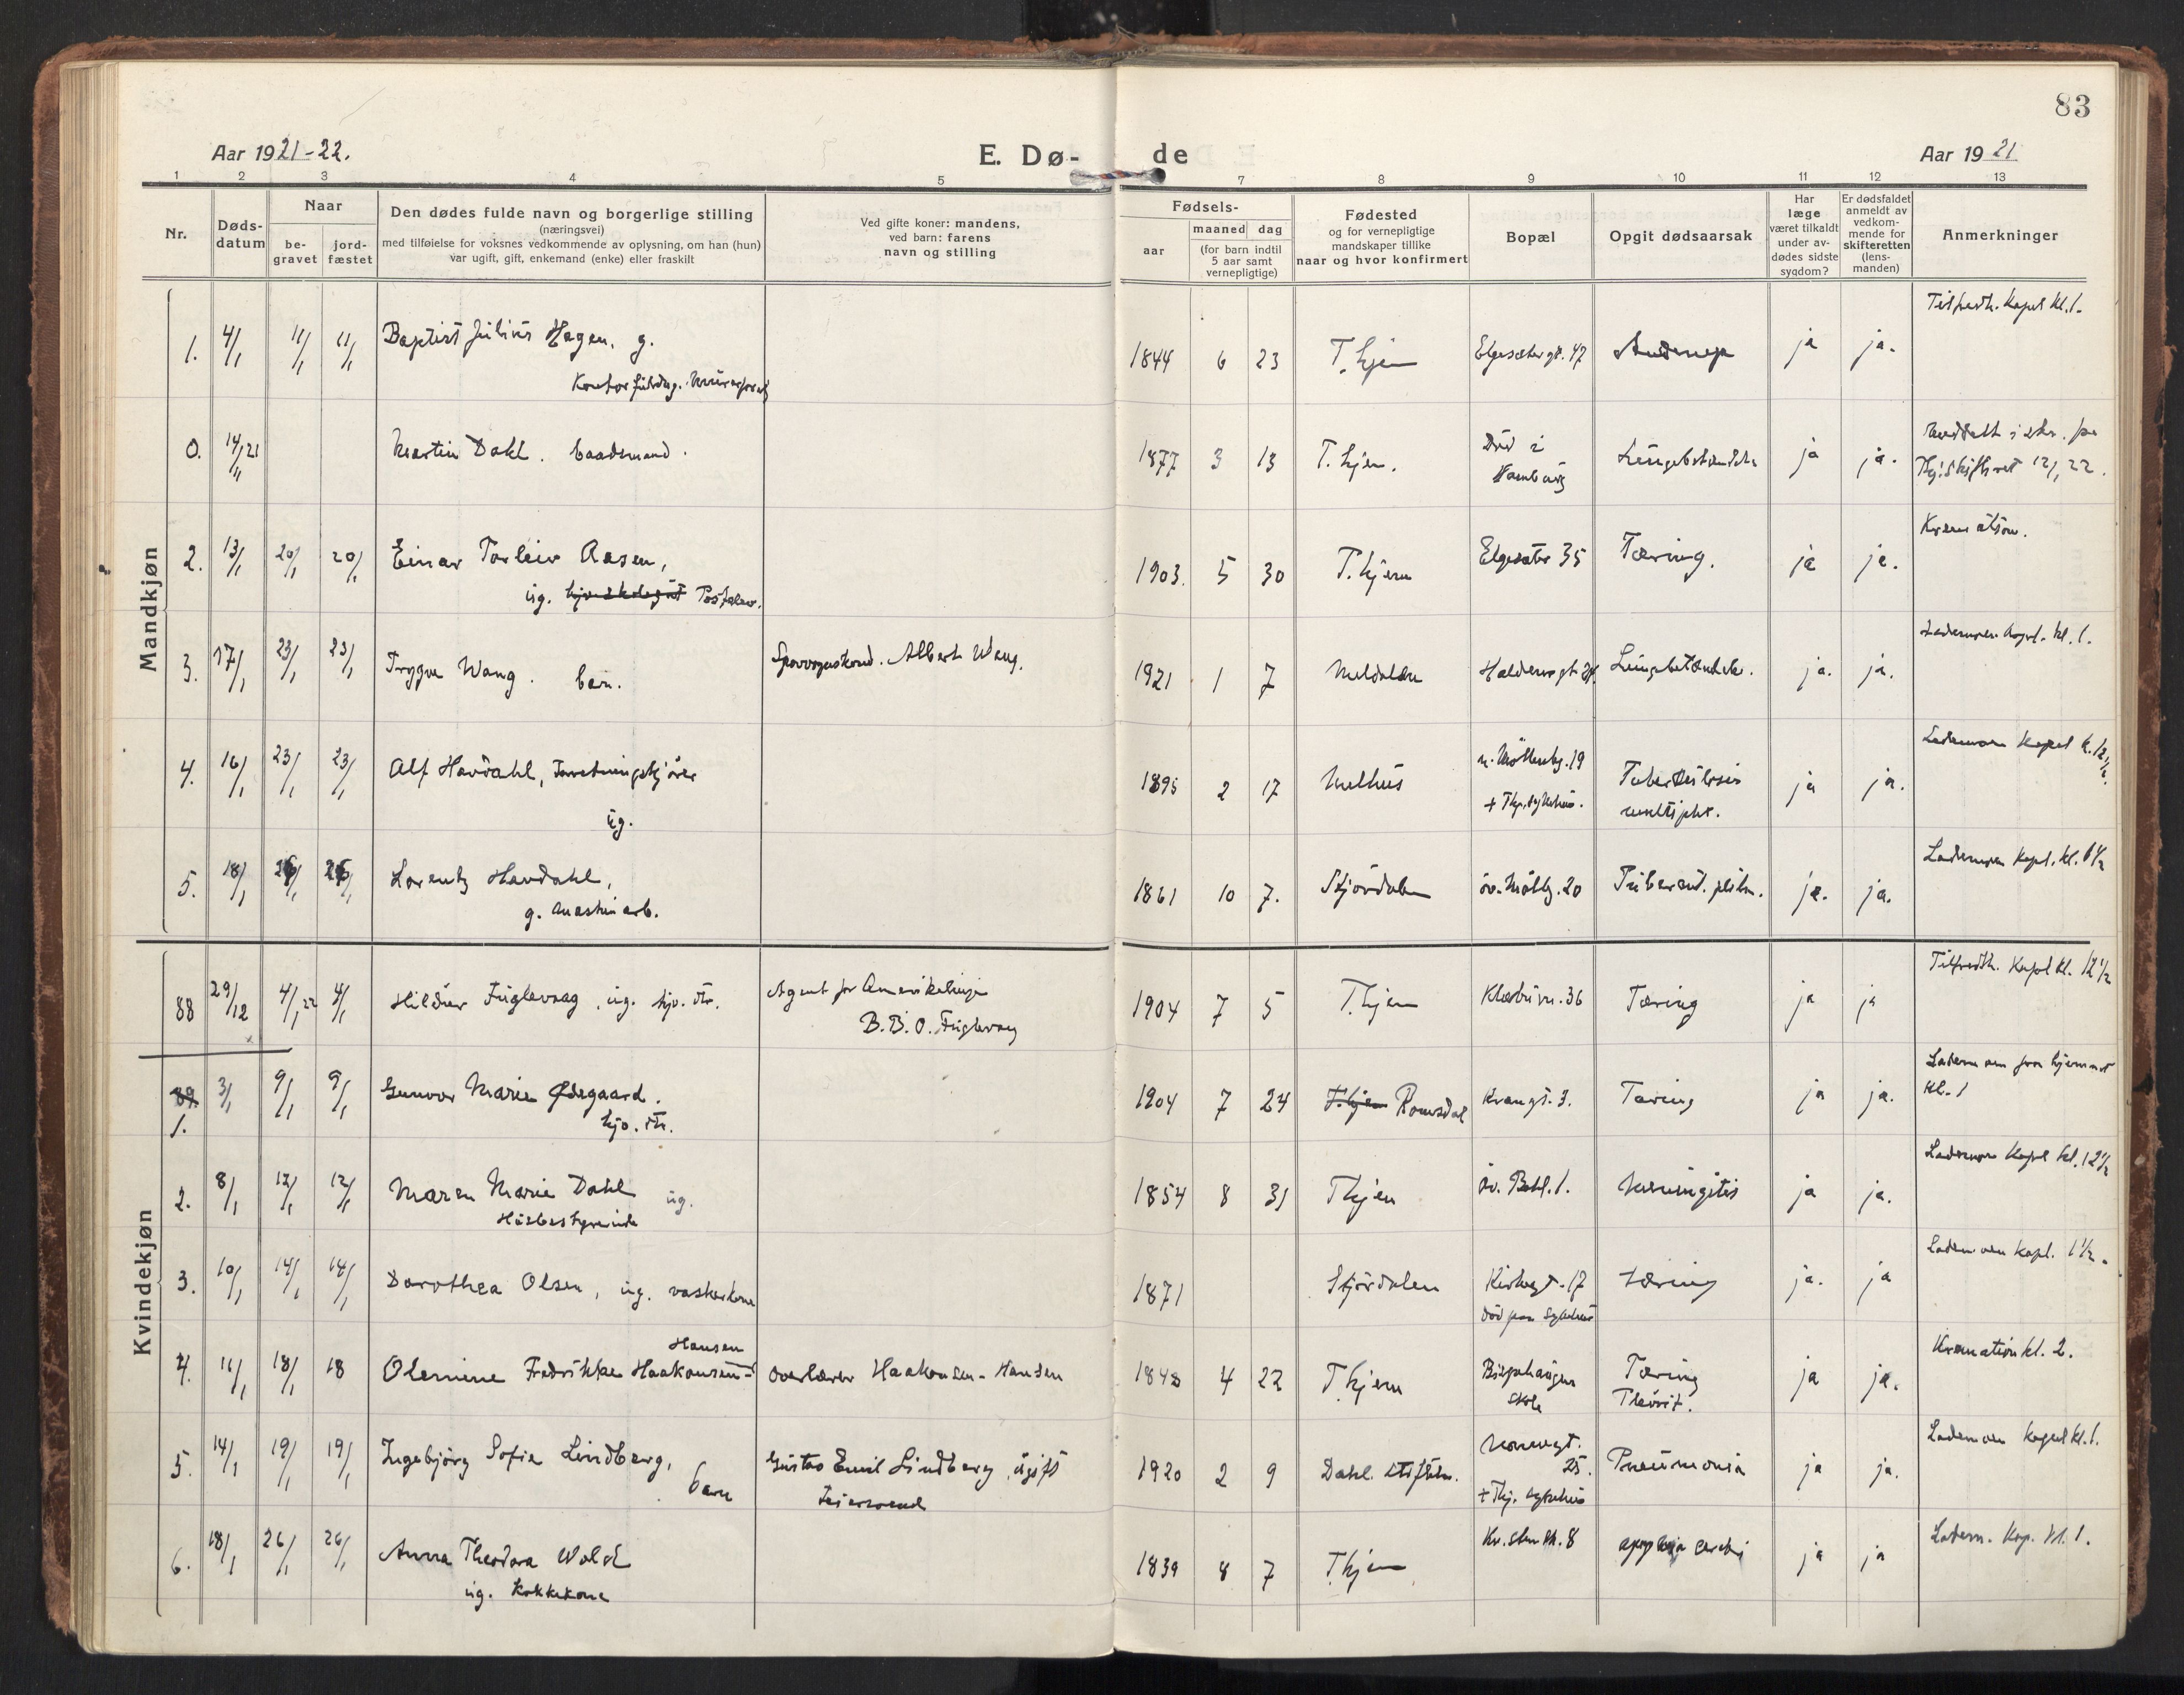 83
Aar 1921-22.
E. Dø-
de
Aar 1921
1 2 3 4 5 7 8 9 10 11 12 13
Nr.
Døds-
datum
Naar
be-
gravet
jord-
fæstet
Den dødes fulde navn og borgerlige stilling
(næringsvei)
med tilføielse for voksnes vedkommende av oplysning, om han (hun)
var ugift, gift, enkemand (enke) eller fraskilt
Ved gifte koner: mandens,
ved barn: farens
navn og stilling
Fødsels-
aar
maaned dag
(for barn indtil
5 aar samt
vernepligtige)
Fødested
og for vernepligtige
mandskaper tillike
naar og hvor konfirmert
Bopæl
Opgit dødsaarsak
Har
læge
været tilkaldt
under av-
dødes sidste
sygdom?
Er dødsfaldet
anmeldt av
vedkom-
mende for
skifteretten
(lens-
manden)
Anmerkninger
Mandkjøn
1. 4/1 11/1 11/1 Baptist Julius Hagen, g.
1844 6 23 T.hjem Elgesætergt. 47 ja ja.
Tilfredsh. Kapel kl. 1.
0. 14/11 21 Martin Dahl. baadsmand.
1877 3 13 T.hjem. Død i
Hamburg
Lungebetændelse ja ja.
2. 13/1 20/1 20/1 Einar Torleiv Aasen,
ug. Postelev.
1903. 5 30 T.hjem Elgesæter 35 Tæring. ja ja.
Kremation.
3. 17/1 23/1 23/1 Trygve Wang. barn.
Sporvognskond. Albert Wang.
1921 1 7 Meldalen Lungebetændelse. ja. ja.
Lademoen Kapel. kl. 1.
4. 16/1 23/1 23/1 Alf Havdahl, Forretningskjører
ug.
1895 2 17 Melhus n. Møllenbg. 19
+ Thj. sykehus.
Tuberkulosis
multiplex.
ja ja.
Lademoen Kapel k. 12 1/2.
5. 18/1 26/1 26/1 Lorentz Havdahl,
g. Maskinarb.
1861 10 7. Stjørdalen øv. Møllbg. 20 ja. ja.
Lademoen Kapel. kl.
Kvindekjøn
88 29/12 4/1 22 4/1 Hildur Fuglevaag, ug. hjv. dtr.
Agent for Amerikalinje
B.B.O. Fuglevaag
1904 7 5 T.hjem Klæbuvn. 36 Tæring ja ja
Tilfredsh. Kapel kl. 12 1/2
89
1. 3/1 9/1 9/1 Gunvor Marie Ødegaard.
hjv. dtr.
1904 7 24 T.hjem Romsdal Kvamgt. 3. Tæring ja ja.
Lademoen fra hjemmet
kl. 1
2. 8/1 12/1 12/1 Maren Marie Dahl ug.
Husbestyrerinde
1854 8 31 T.hjem øv. Bakl. 1. Meningitis ja ja.
Lademoen Kapel kl. 12 1/2
3. 10/1 14/1 14/1 Dorothea Olsen, ug. vaskerkone
1871 Stjørdalen Kirkegt. 17
død paa sykehus
Tæring ja. ja
Lademoen Kapl. 1 1/2.
4. 11/1 18/1 18 Olemine Fredrikke Haakonsen-
Hansen
Overlærer Haakonsen-Hansen
1848 4 22 T.hjem Bispehaugen
skole
Tæring
Plevrit.
ja ja.
Kremation kl. 2.
5. 14/1 19/1 19/1 Ingebjørg Sofie Lindberg,
barn
Gustav Emil Lindberg, ugift
1920 2 9 Dahl. stiftelse.
25.
+ Thj. sykehus
Pneumonia ja ja.
Lademoen kapel kl. 1.
6. 18/1 26/1 26/1 Anna Theodora Wold
ug. Kokkekone
1839 8 7 T.hjem ja ja
Ladem. Kap. kl. 1.